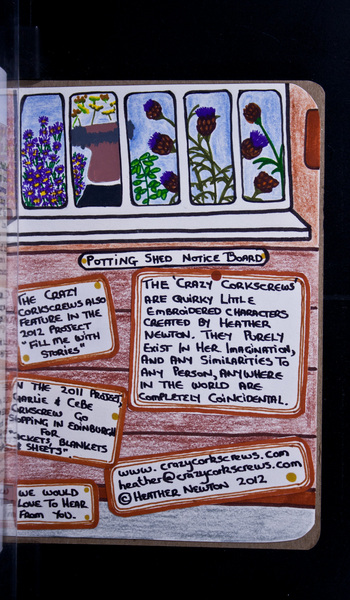 POTTING SHED NOTICE BOARD
THE CRAZY
CORKSCREWS ALSO
FEATURE IN THE
2012 PROJECT
"FILL ME WITH
STORIES"
THE 'CRAZY CORKSCREWS'
ARE QUIRKY LITTLE
EMBROIDERED CHARACTERS
CREATED BY HEATHER
NEWTON. THEY PURELY
EXIST IN HER IMAGINATION,
AND ANY SIMILARITIES TO
ANY PERSON, ANYWHERE
IN THE WORLD ARE
COMPLETELY COINCIDENTAL.
IN THE 2011 PROJECT
CHARLIE & CEBE
CORKSCREW GO
SHOPPING IN EDINBURGH
FOR
BLANKETS
& SHEETS"
www.crazycorkscrews.com
heather@crazycorkscrews.com
© HEATHER NEWTON 2012
WE WOULD
LOVE TO HEAR
FROM YOU.